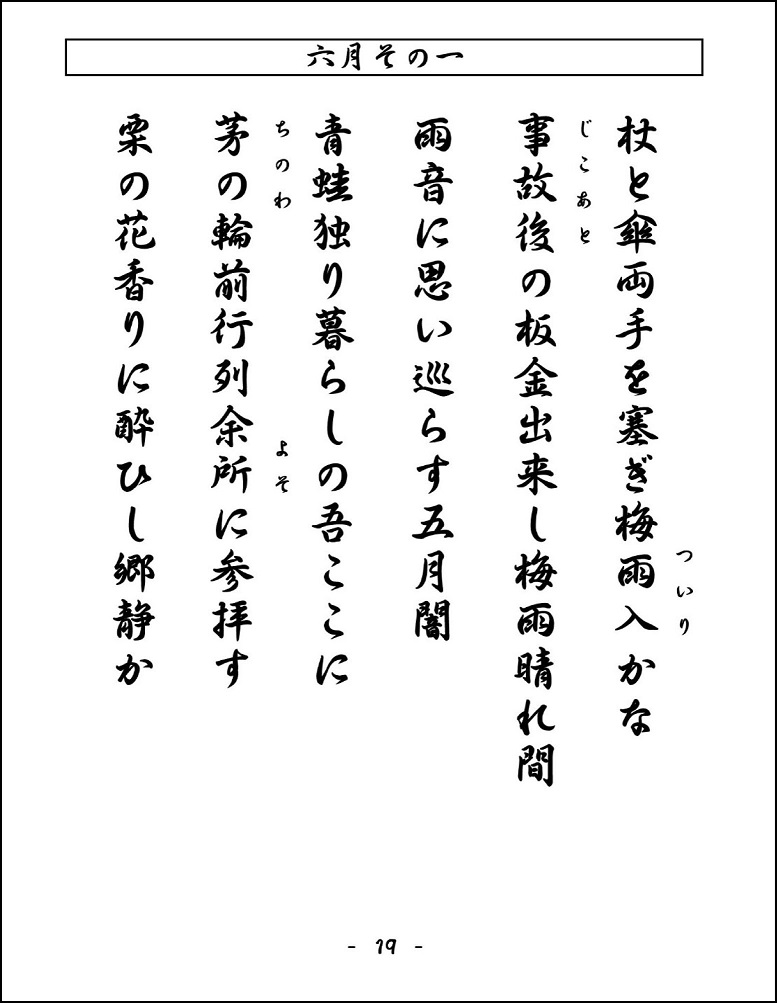 六月その一
杖と傘両手を塞ぎ梅雨入かな
ついり
事故後の板金出来し梅雨晴れ間
じこあと
雨音に思い巡らす五月闇
青蛙独り暮らしの吾ここに
茅の輪前行列余所に参拝す
ちのわ
よそ
栗の花香りに酔ひし郷静か
- 19 -